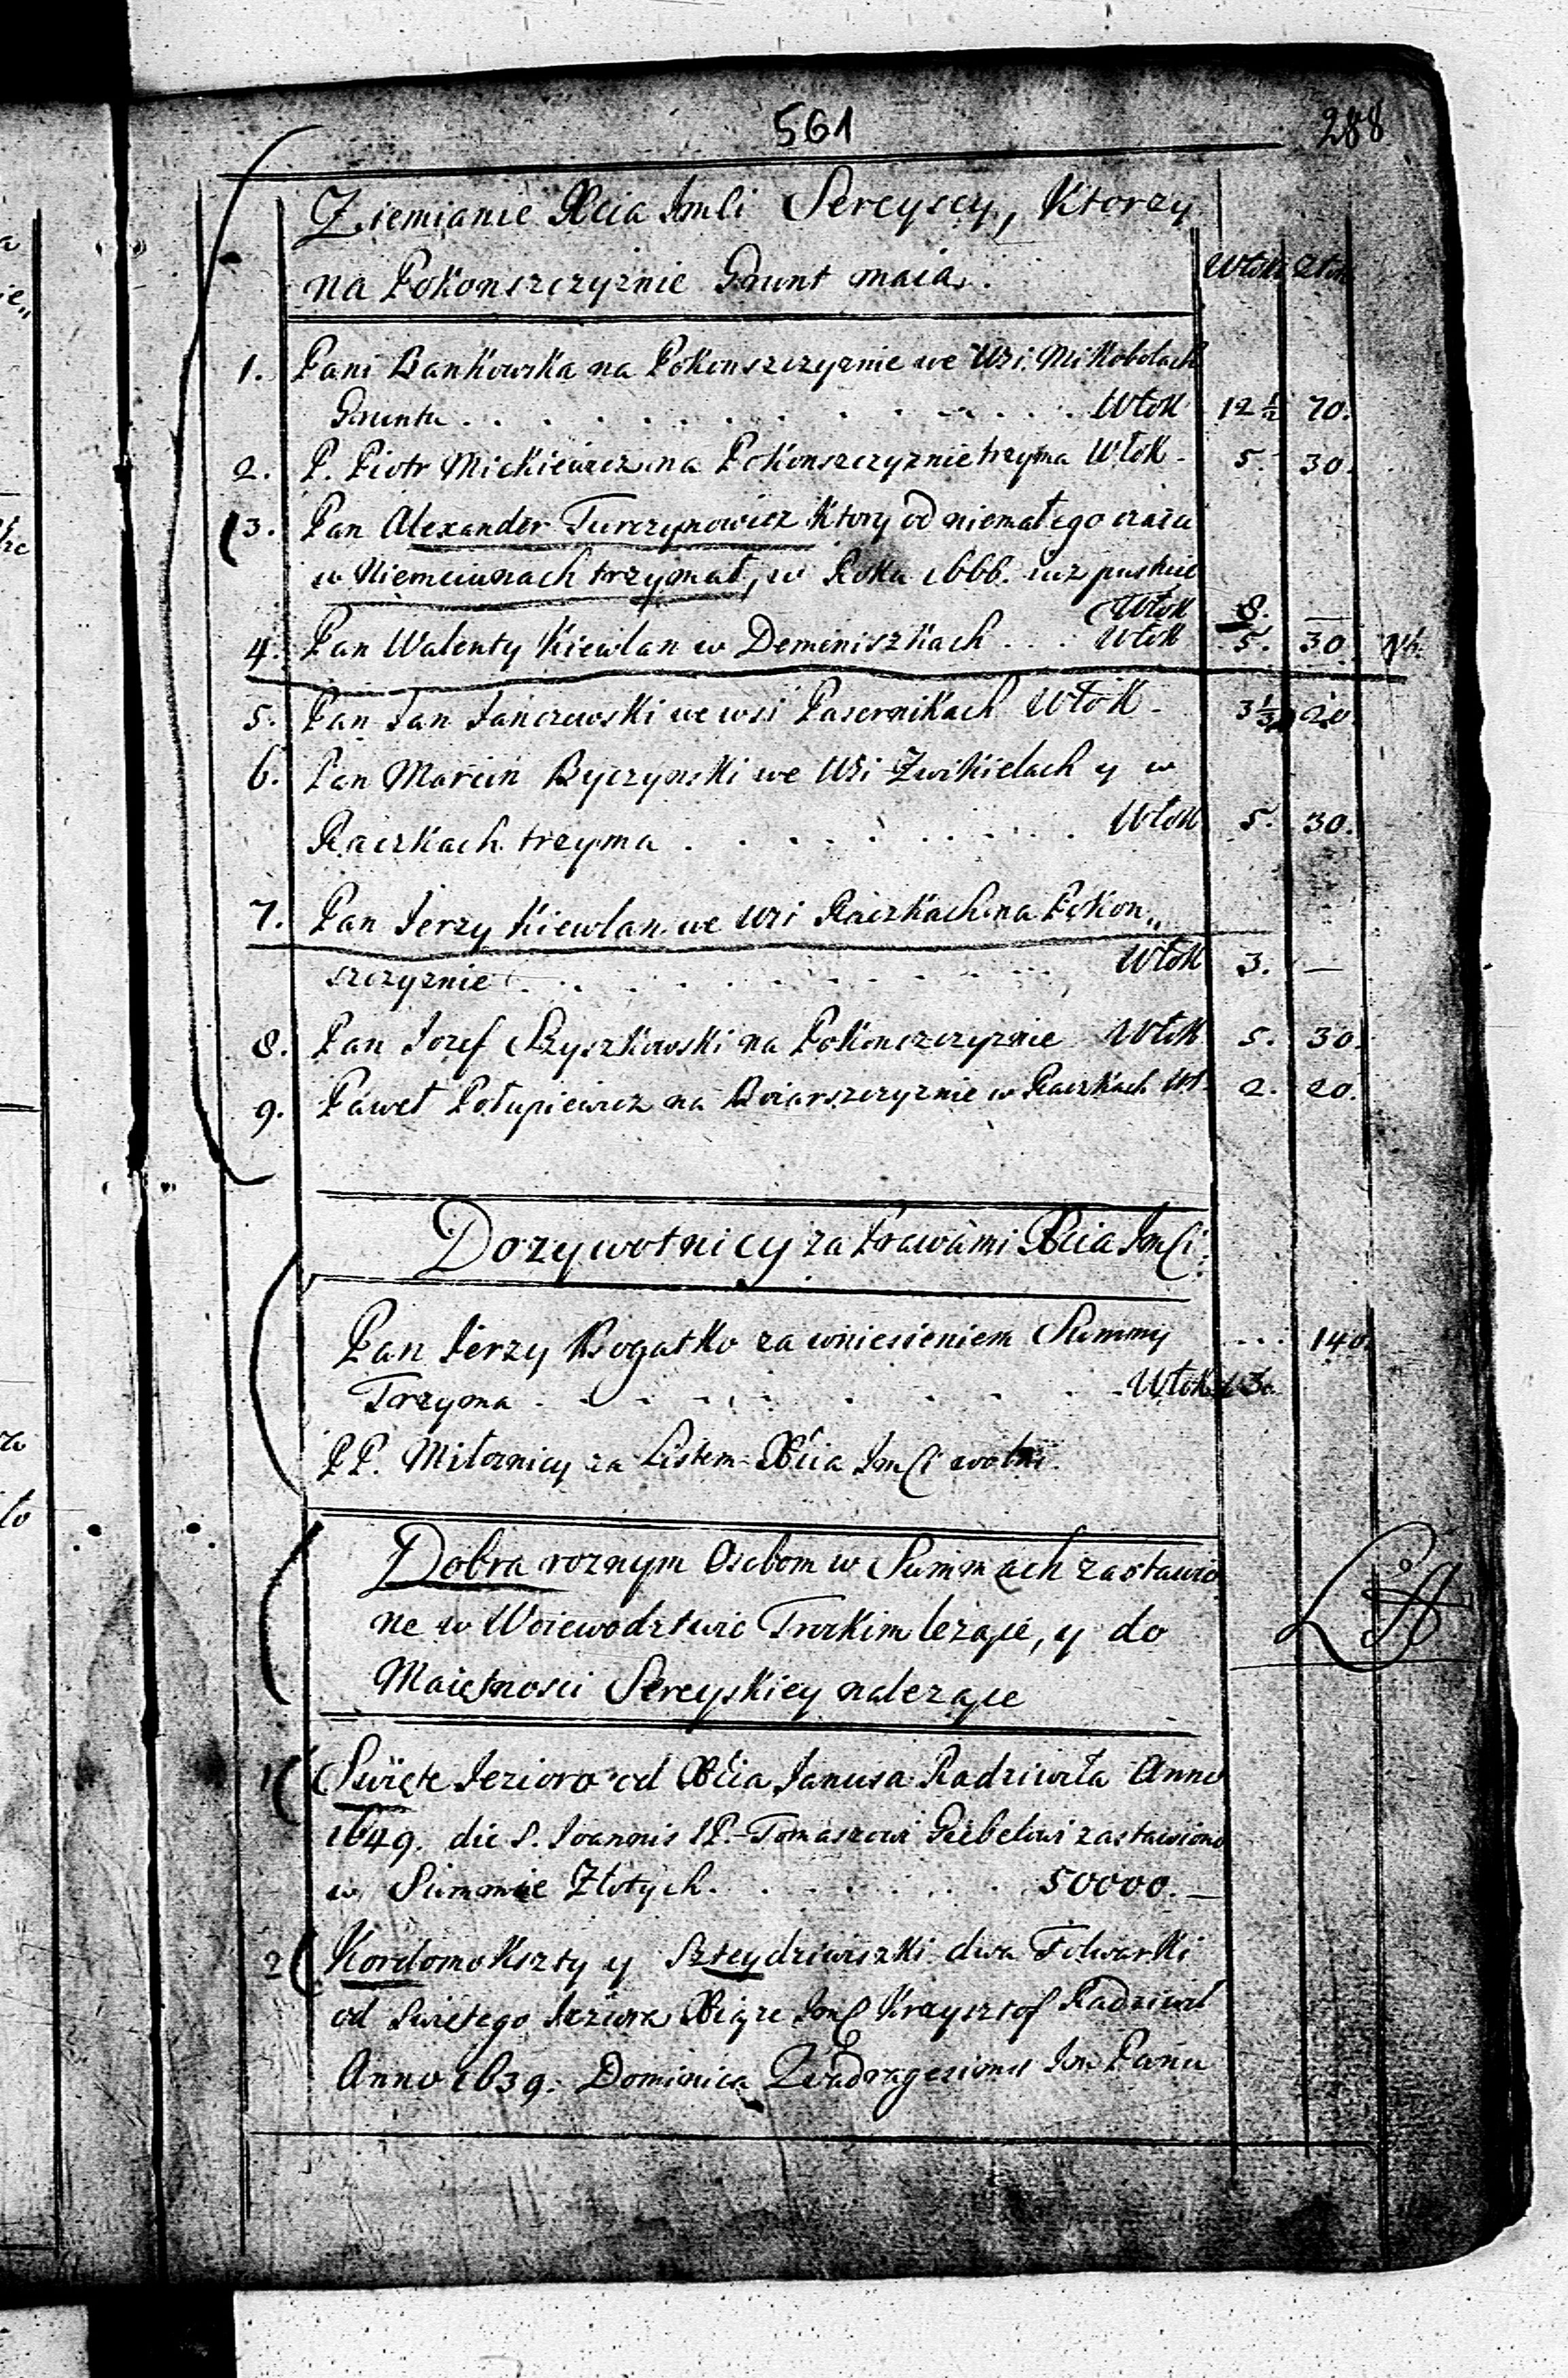 561
288
Ziemianie Xcia Jmci Sereyscy, Ktorzy
na Pokonszczyznie Grunt maią. Włok. Złm.
1. Pani Bankowska na Pokonszczyznie we Wsi Mikobolach
Gruntu . . . Włok 12 ½ 70.
2. P. Piotr Mickiewicz na Pokonszczyznie trzyma Włok. 5. 30.
3. Pan Alexander Turczynowicz Ktory od niemałego czasu
w Niemciunach trzymał, w Roku 1666. iuz puskie
Włok 8. —
4. Pan Walenty Kiewlan w Deminiszkach . . . Włok 5. 30. Nb.
5. Pan Jan Janczewski we wsi Pasernikach Włok. 3 ⅓ 20.
6. Pan Marcin Byczynski we Wsi Zwikielach y w
Raczkach trzyma . . . Włok 5. 30.
7. Pan Jerzy Kiewlan we Wsi Raczkach na Pokon„
szczyznie . . . Włok 3. —
8. Pan Jozef Szyszkowski na Pokonszczyznie Włok 5. 30.
9. Paweł Połupiewicz na Boiarszczyznie w Raczkach Wł. 2. 20.
Dozywotnicy za Prawami Xcia Jmci.
Pan Jerzy Bogatko za wniesieniem Summy . . . 140.
Trzyma . . . Włok 13.
PP. Miłoznicy za Listem Xcia Jmci wolni.
Dobra roznym Osobom w Summach zastawio
ne w Woiewodztwie Trockim leżące, y do
Maiętnosci Sereyskiey nalezące
1 Swięte Jezioro od Xcia Janusa Radziwiła Anno
1649. die S. Joannis JP. Tomaszowi Giebelowi zastawiono
w Summie Złotych . . . 50000.—
2 Kordomokszty y Szteydziwiszki dwa Folwarki
od Swiętego Jeziora Xiąze Jmc Krzysztof Radziwił
Anno 1639. Dominica Quadragesimus Jm Panu